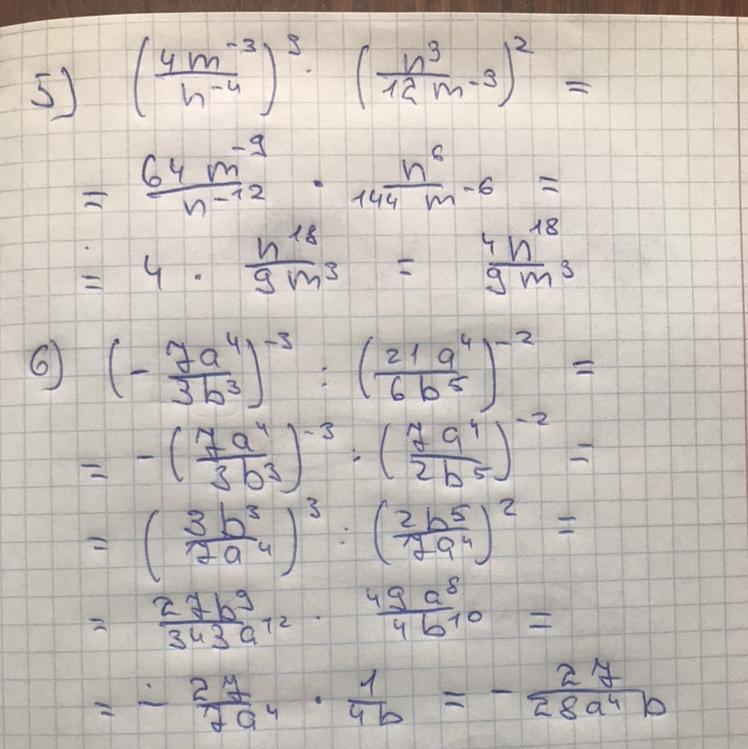 5) (4m⁻³/n⁻⁴)³ · (n³/12m⁻³)² =
= 64m⁻⁹/n⁻¹² · n⁶/144m⁻⁶ =
= 4 · n¹⁸/9m³ = 4n¹⁸/9m³
6) (-7a⁴/3b³)⁻³ : (21a⁴/6b⁵)⁻² =
= -(7a⁴/3b³)⁻³ : (7a⁴/2b⁵)⁻² =
= (3b³/7a⁴)³ : (2b⁵/7a⁴)² =
= 27b⁹/343a¹² · 49a⁸/4b¹⁰ =
= - 27/7a⁴ · 1/4b = - 27/28a⁴b